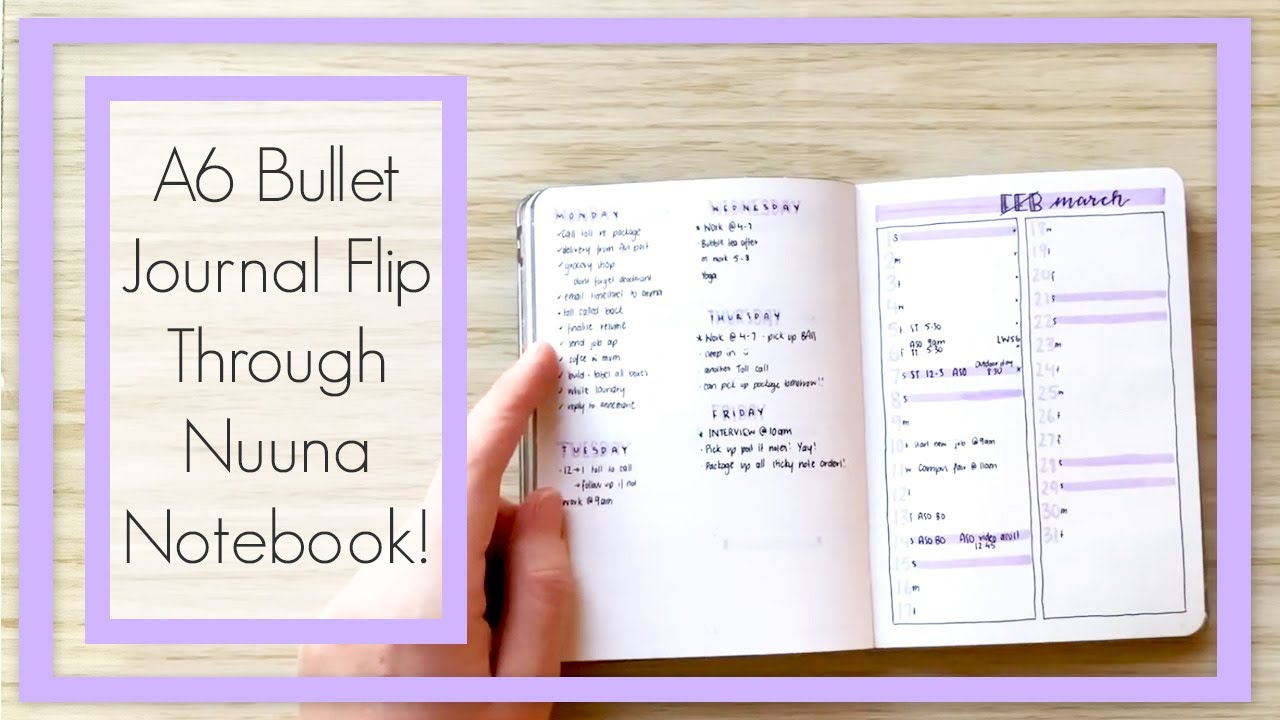 A6 Bullet
Journal Flip
Through
Nuuna
Notebook!
MONDAY
✓ call toll re package
✓ delivery from Aus post
✓ grocery shop
dont forget deodorant
✓ email timesheet to
toll called back
✓ finalise resume
✓ send job app
✓ build + label all boxes
✓ white laundry
✓ reply to annemarie
TUESDAY
12 → 1 toll to call
→ follow up if not
work @ 9am
WEDNESDAY
Work @ 4-7
Bubble tea after
m mark 5-8
Yoga
THURSDAY
Work @ 4-7 - pick up BAS
sleep in
another Toll call
can pick up package tomorrow!!
FRIDAY
INTERVIEW @ 10am
Pick up post it notes! Yay!
Package up all sticky note orders!
FEB march
s
2 m
3 t
4
5 t ST 5:30
6 f ASO 9am LWSG
ST 5:30
7 s ST 12-3 ASO Outdoor play
8:30
8 s
9 m
10 t start new job @ 9am
11 w Campus fair @ 11am
12 t
13 f ASO BO
14 s ASO BO ASO video
12:45
15 s
16 m
17 t
18 w
19 t
20 f
21 s
22 s
23 m
24 t
25 w
26 t
27 f
28 s
29 s
30 m
31 t